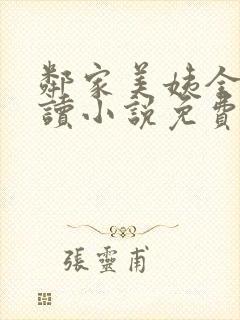 鄰家美姨全
讀小說免費
張靈甫